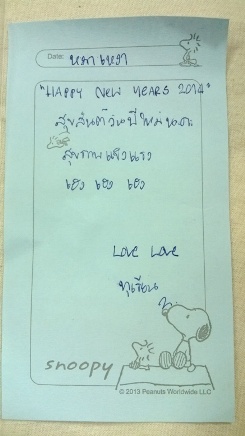 Date: หมาเหงา
"HAPPY NEW YEARS 2014"
สุขสันต์วันปีใหม่นะคะ
สุขภาพแข็งแรง
เฮง เฮง เฮง
LOVE LOVE
ทุเรียน
snoopy
© 2013 Peanuts Worldwide LLC